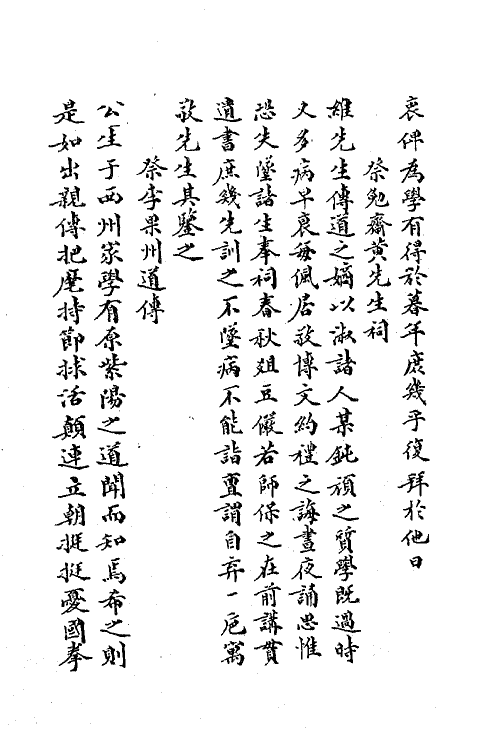 衷俾為學有得於暮年庶幾乎復拜於他日
祭勉齋黄先生祠
維先生傳道之嫡以淑諸人某鈍頑之質學既過時
又多病早衰每佩居敬博文約禮之誨晝夜誦思惟
恐失墜諸生奉祠春秋俎豆儼若師保之在前講貫
遺書庶幾先訓之不墜病不能詣亶謂自弃一巵寓
敬先生其鑒之
祭李果州道傳
公生于西州家學有原紫陽之道聞而知焉希之則
是如出親傳把麾持節捄活顛連立朝挺挺憂國拳